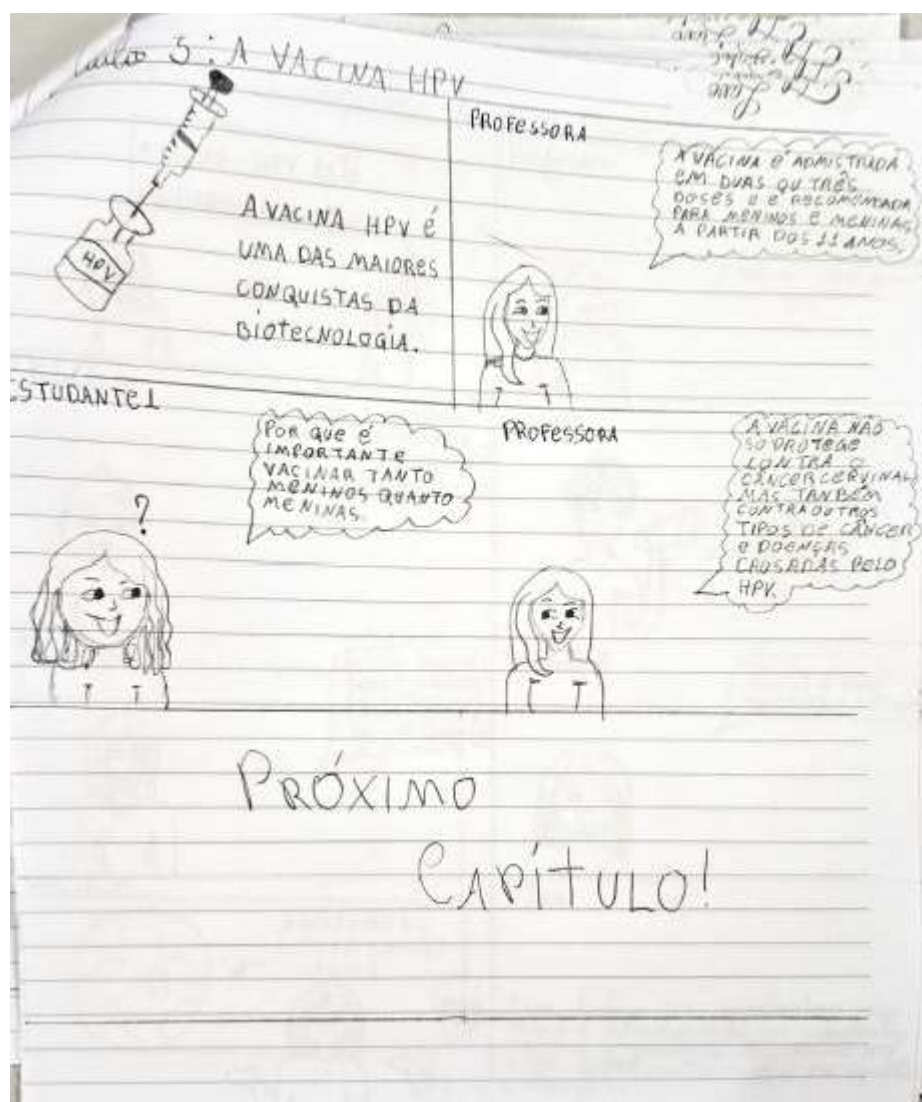 3: A VACINA HPV
HPV
A VACINA HPV É
UMA DAS MAIORES
CONQUISTAS DA
BIOTECNOLOGIA.
PROFESSORA
A VACINA É ADMISTRADA
EM DUAS OU TRÊS
DOSES E É RECOMENDADA
PARA MENINOS E MENINAS
A PARTIR DOS 11 ANOS.
ESTUDANTE 1
?
POR QUE É
IMPORTANTE
VACINAR TANTO
MENINOS QUANTO
MENINAS
PROFESSORA
A VACINA NÃO
SO PROTEGE
CONTRA O
CÂNCER CERVINAL
MAS TANBÉM
CONTRA OUTROS
TIPOS DE CÂNCER
E DOENÇAS
CAUSADAS PELO
HPV.
PRÓXIMO
CAPÍTULO!